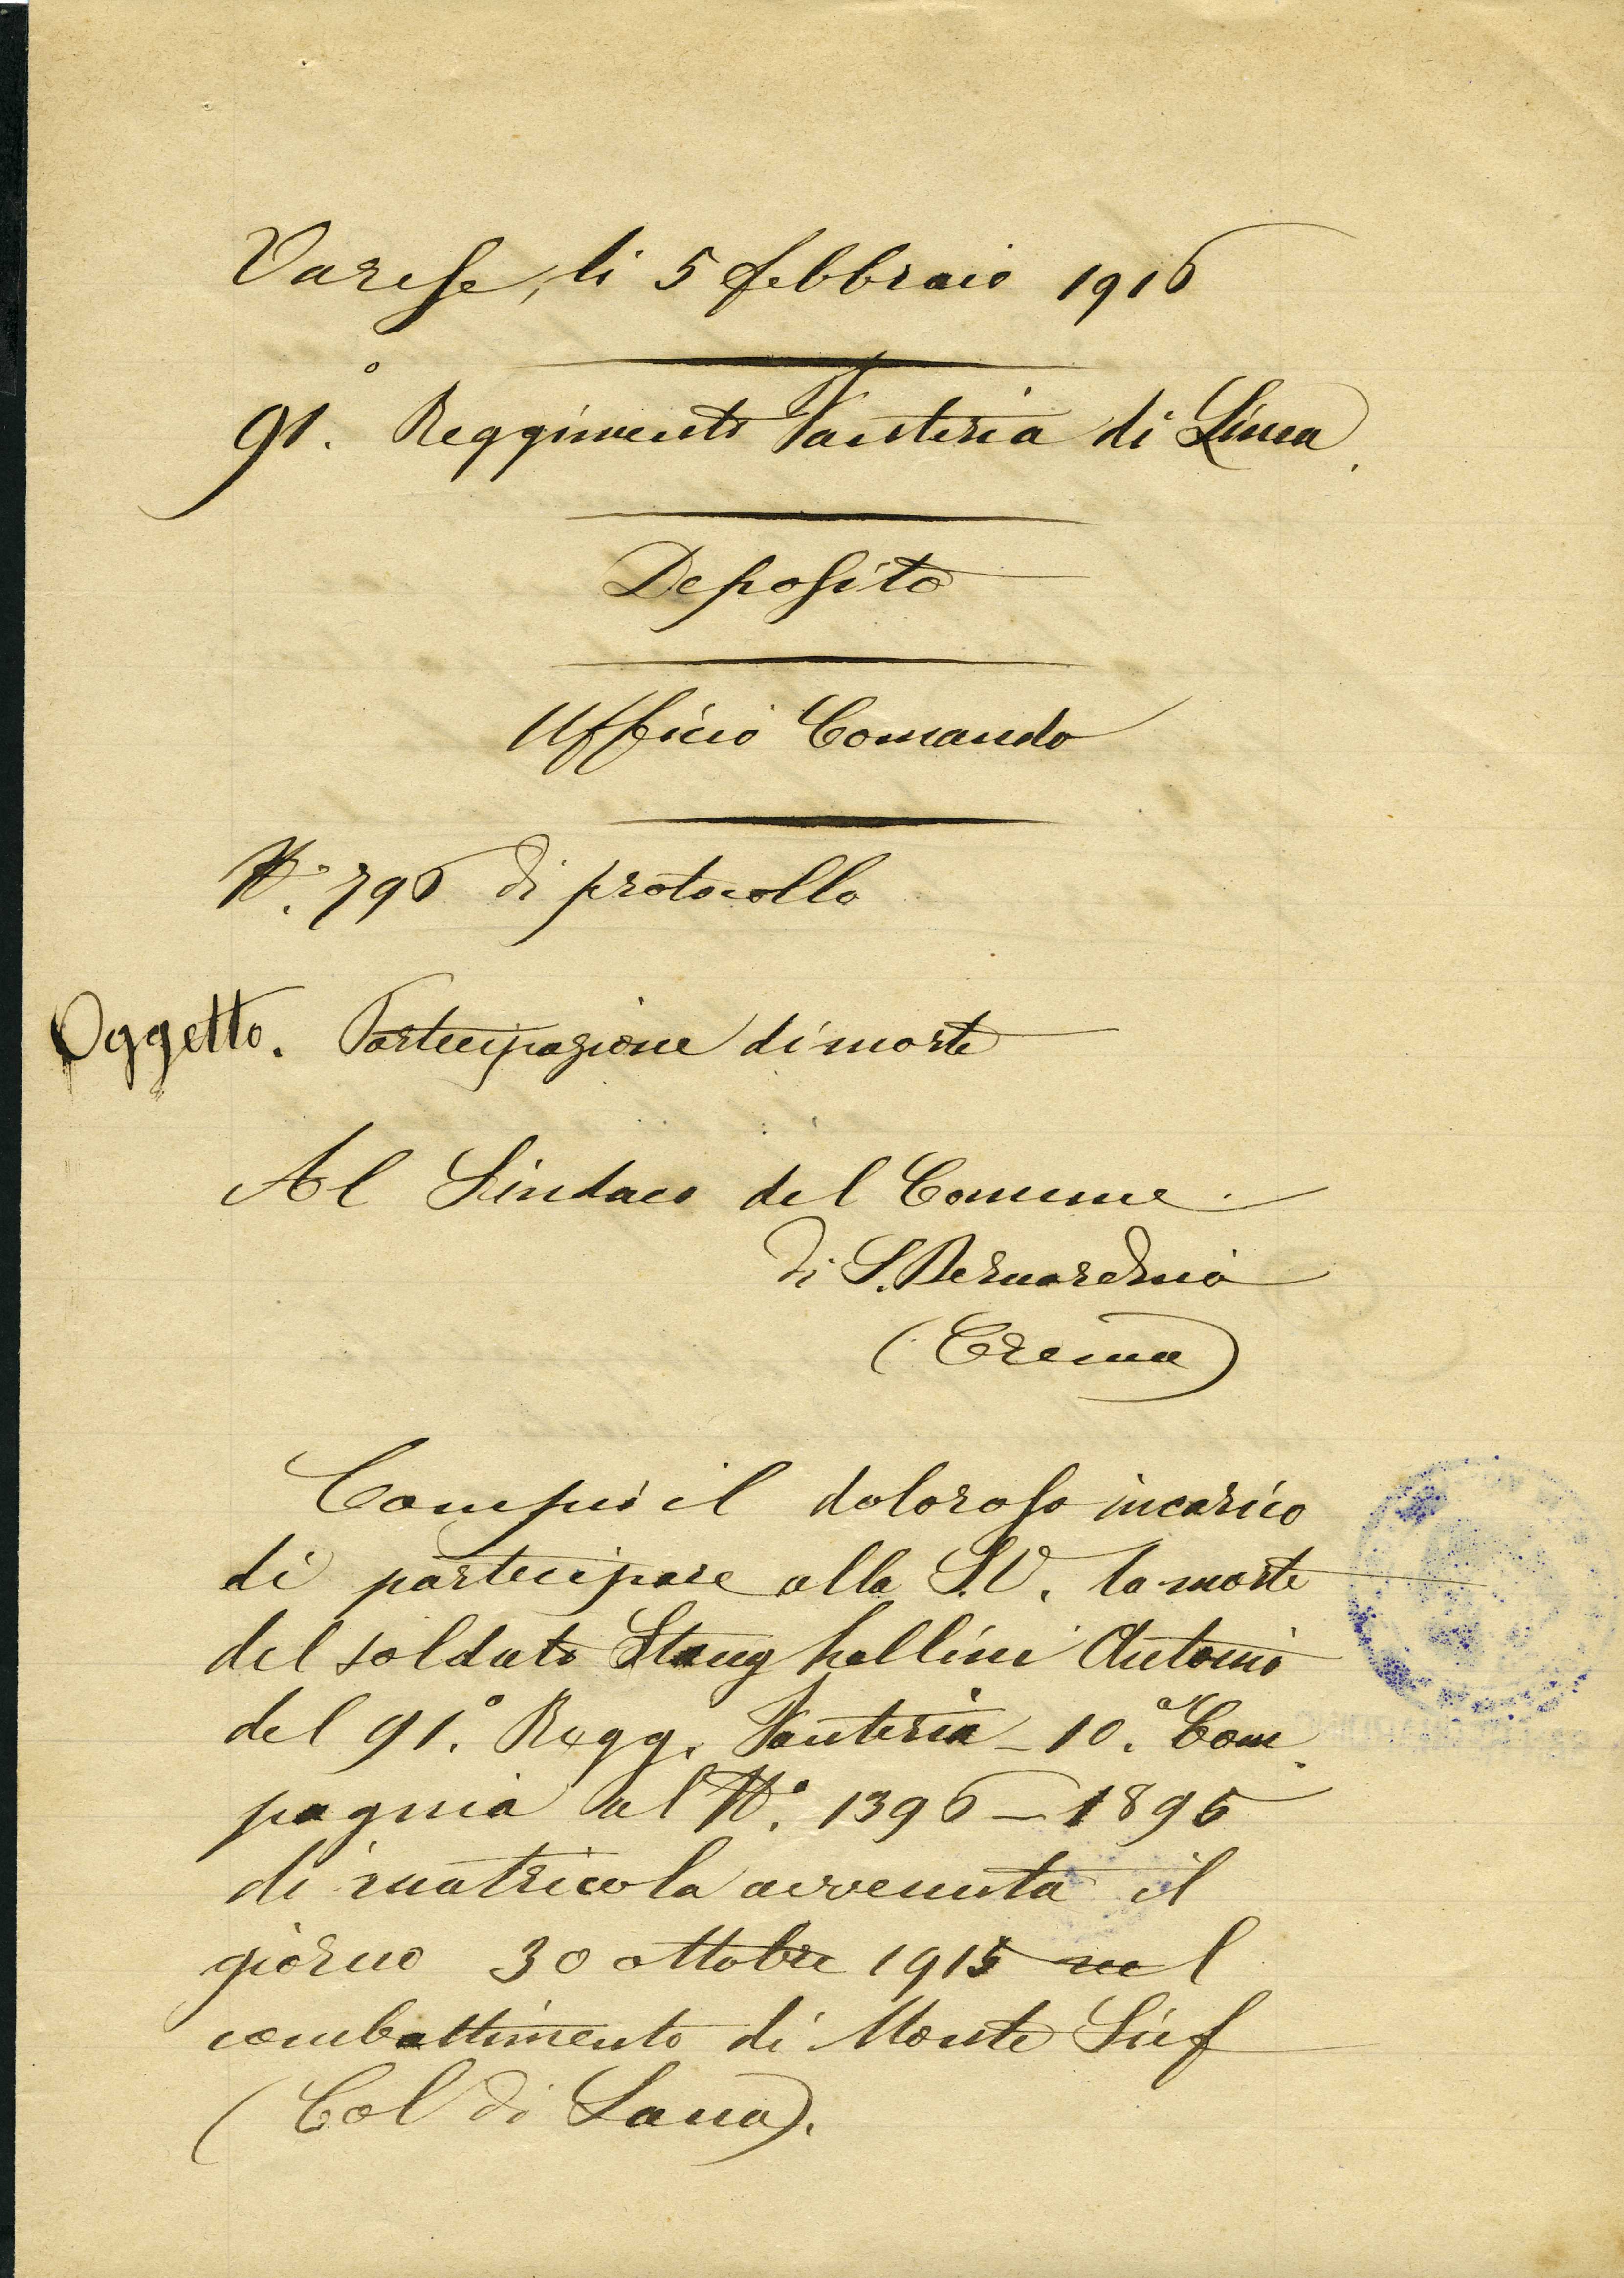 Varese, li 5 febbraio 1916
91.° Reggimento Fanteria di Linea
Deposito
Ufficio Comando
N.° 796 di protocollo
Oggetto. Partecipazione di morte
Al Sindaco del Comune
di S. Bernardino
(Crema)
Compio il doloroso incarico
di partecipare alla S.V. la morte
del soldato Stanghellini Antonio
del 91.° Regg. Fanteria - 10.ª Com
pagnia al N.° 1396 - 1895
di matricola avvenuta il
giorno 30 ottobre 1915 nel
combattimento di Monte Sief
(Col di Lana).